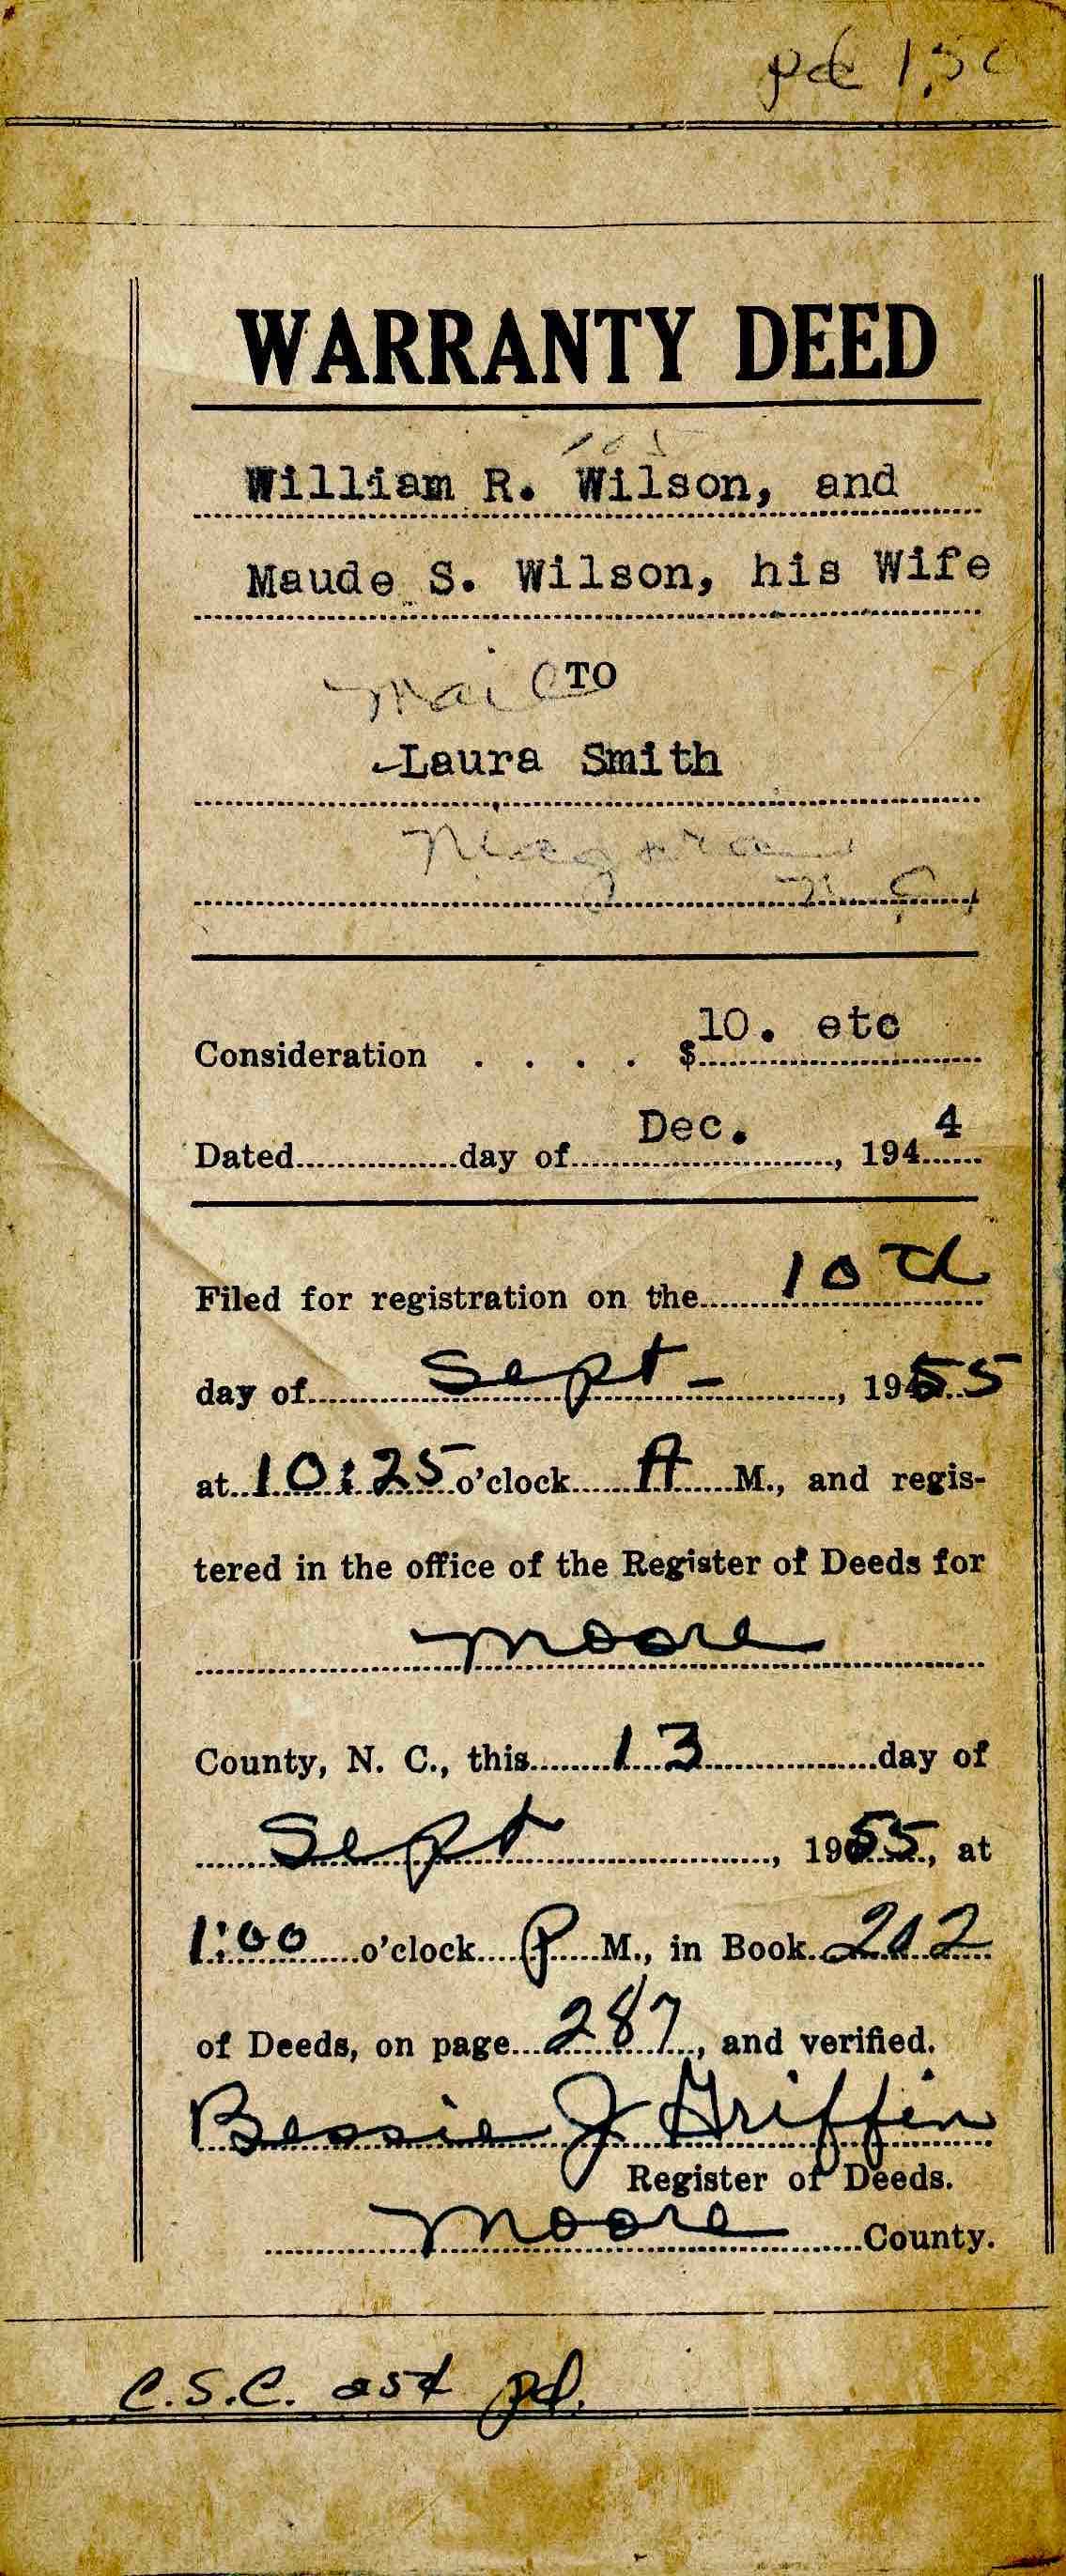 pd 1.50
WARRANTY DEED
William R. Wilson, and
Maude S. Wilson, his Wife
Mail TO
Laura Smith
Niagara
N. C.
Consideration . . . . $10. etc
Dated................day of Dec. , 1944
Filed for registration on the 10th
day of Sept - , 1955
at 10:25 o'clock A M., and regis-
tered in the office of the Register of Deeds for
Moore
County, N. C., this 13 day of
Sept , 1955, at
1:00 o'clock P M., in Book 212
of Deeds, on page 287, and verified.
Bessie J Griffin
Register of Deeds.
Moore County.
C.S.C. 25¢ pd.